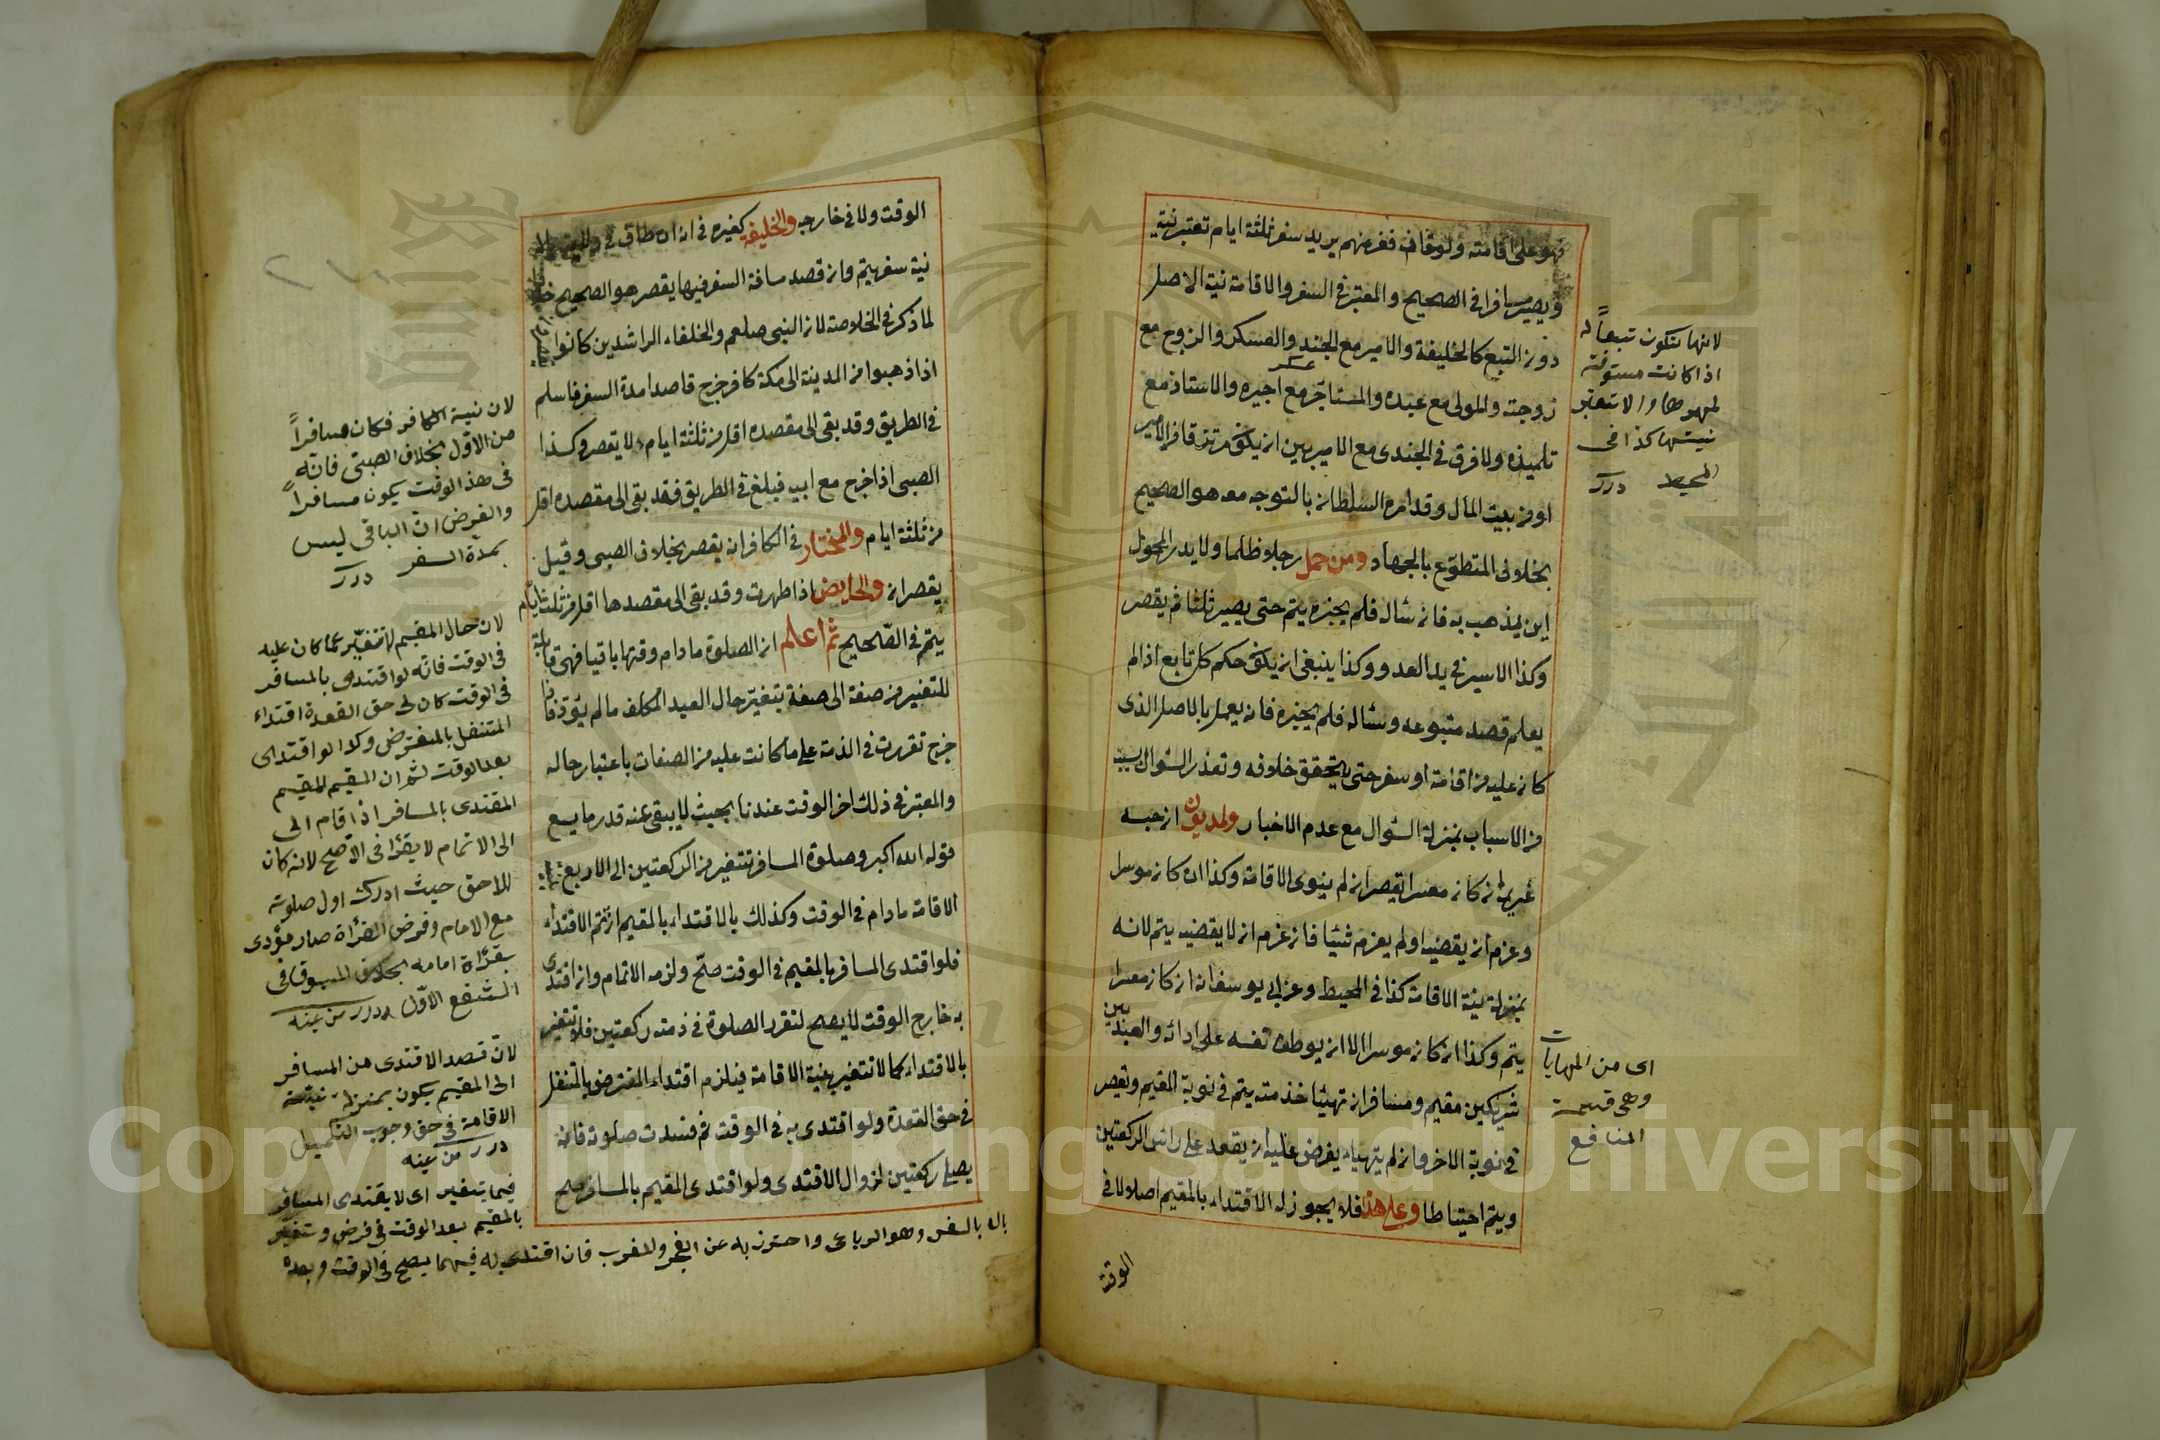 فهو على اقامته ولوخاف فغرمنهم يريد سفر ثلثة ايام تعتبر نيته
ويصير مسافرا فى الصحيح والمعتبر فى السفر والاقامة نية الاصل
دون التبع كالخليفة والامير مع الجند والعسكر والزوج مع
زوجته والمولى مع عبده والمستأجر مع اجيره والاستاذ مع
تلميذه ولافرق فى الجندى مع الامير بين ان يكون مرتزقا من الامير
او من بيت المال وقد امره السلطان بالتوجه معه هو الصحيح
بخلاف المتطوع بالجهاد ومن حمل رجلا ظلما ولا يدرى المحمول
اين يذهب به فان سأله فلم يخبره يتم حتى يصير ثلثا ثم يقصر
وكذا الاسير فى يد العدو وكذا ينبغى ان يكون حكم كل تابع اذا لم
يعلم قصد متبوعه وسأله فلم يخبره فانه يعمل بالاصل الذى
كان عليه من اقامة او سفر حتى يتحقق خلافه وتعذر السؤال بسبب
من الاسباب بمنزلة السؤال مع عدم الاخبار والمديون ان حبسه
غريمه ان كان معسرا يقصر ان لم ينوى الاقامة وكذا ان كان موسرا
وعزم ان يقضيه او لم يعزم شيئا فان عزم ان لا يقضيه يتم لانه
بمنزلة نية الاقامة كذا فى المحيط وعن ابى يوسف انه ان كان معسرا
يتم وكذا ان كان موسرا الا ان يوطن نفسه على ادائه والعبد بين
شريكين مقيم ومسافر ان تهيئا خدمته يتم فى نوبة المقيم ويقصر
فى نوبة الاخر وان لم يتهيئا يفرض عليه ان يقعد على رأس الركعتين
ويتم احتياطا وعلى هذا فلا يجوز له الاقتداء بالمقيم اصلا لا فى
الوقت
لانها تكون تبعا له
اذا كانت مستوفية
لمهرها والا تعتبر
نيتها كذا فى
المحيط درر
اى من المهايات
وهى قسمة
المنافع
الوقت ولا فى خارجه والخليفة كغيره فى انه ان طاف فى ولايته بلا
نية سفر يتم وان قصد مسافة السفر فيها يقصر هو الصحيح
لما ذكر فى الخلاصة لان النبى صلعم والخلفاء الراشدين كانوا
اذا ذهبوا من المدينة الى مكة كافر خرج قاصدا مدة السفر فاسلم
فى الطريق وقد بقى الى مقصده اقل من ثلثة ايام لا يقصر وكذا
الصبى اذا خرج مع ابيه فبلغ فى الطريق فقد بقى الى مقصده اقل
من ثلثة ايام والمختار فى الكافر انه يقصر بخلاف الصبى وقيل
يقصران والحايض اذا طهرت وقد بقى الى مقصدها اقل من ثلثة ايام
يتم فى الصحيح ثم اعلم ان الصلوة مادام وقتها باقيا فهى قابلة
للتغير من صفة الى صفة بتغير حال العبد المكلف ما لم يؤد فاذا
خرج تقررت فى الذمة على ما كانت عليه من الصفات باعتبار حاله
والمعتبر فى ذلك اخر الوقت عندنا بحيث لا يبقى منه قدر ما يسع
قوله الله اكبر وصلوة المسافر تتغير من الركعتين الى الاربع بنية
الاقامة مادام فى الوقت وكذلك بالاقتداء بالمقيم ان تم الاقتداء
فلو اقتدى المسافر بالمقيم فى الوقت صح ولزمه الاتمام وان اقتدى
به خارج الوقت لا يصح لتقرر الصلوة فى ذمته ركعتين فلا تتغير
بالاقتداء كما لا تتغير بنية الاقامة فيلزم اقتداء المفترض بالمتنفل
فى حق القعدة ولو اقتدى به فى الوقت ثم فسدت صلوته فانه
يصلى ركعتين لزوال الاقتدى ولو اقتدى المقيم بالمسافر صح
لان نية الكافر فكان مسافراً
من الاول بخلاف الصبى فانه
فى هذا الوقت يكون مسافراً
والفرض ان الباقى ليس
بمدة السفر درر
لان حال المقيم لا تتغير عما كان عليه
فى الوقت فانه لو اقتدى بالمسافر
فى الوقت كان فى حق القعدة اقتداء
المتنفل بالمفترض وكذا لو اقتدى
بعد الوقت ثم ان المقيم المقيم
المقتدى بالمسافر اذا قام الى
الى الاتمام لا يقرأ فى الاصح لانه كان
للاحق حيث ادرك اول صلوته
مع الامام وفرض القراة صار مؤدى
بقراة امامه بخلاف المسبوق فى
الشفع الاول درر من عينه
لان قصد الاقتدى من المسافر
الى المقيم يكون بمنزلة نية
الاقامة فى حق وجوب التكميل
درر من عينه
فيما يتغير اى لا يقتدى المسافر
بالمقيم بعد الوقت فى فرض وتتغير
باله بالسفر وهو الرباعى واحترز به عن الفجر والمغرب فان اقتدى به فيهما يصح فى الوقت وبعده